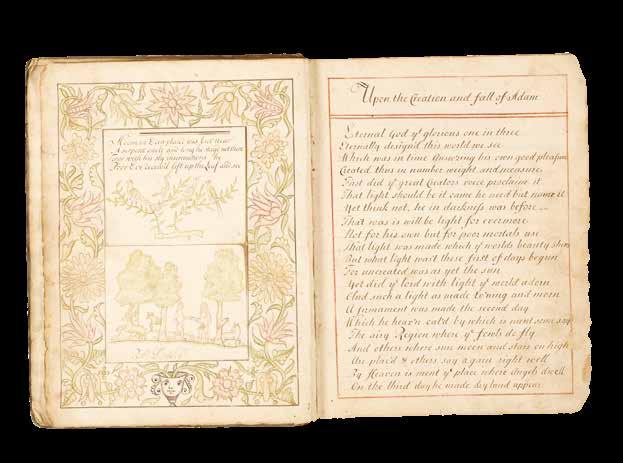 A woman
A serpent
Poor Eve
left up the Leaf and see
Upon the Creation and fall of Adam
Eternal God yͤ glorious one in three
Eternally designd this world we see
Which was in time thro his own good pleasure
Created thus in number weight and measure
First did yͤ great Creators voice proclaime it
That light should be it came he need but name it
Yet think not, he in darkness was before
That was is will be light for evermore
Not for his own but for poor mortals use
That light was made which yͤ worlds beauty shews
But what light wast these first of days begun
For uncreated was as yet the sun
Yet did yͤ lord with light yͤ world adorn
And such a light as made evning and morn
A firmament was made the second day
Which he heavn cal'd by which is ment some say
The airy Region where yͤ fowls do fly
And others where sun moon and stars on high
Are plac'd & others say again right well
By Heaven is ment yͤ place where Angels dwell
On the third day he made dry land appear